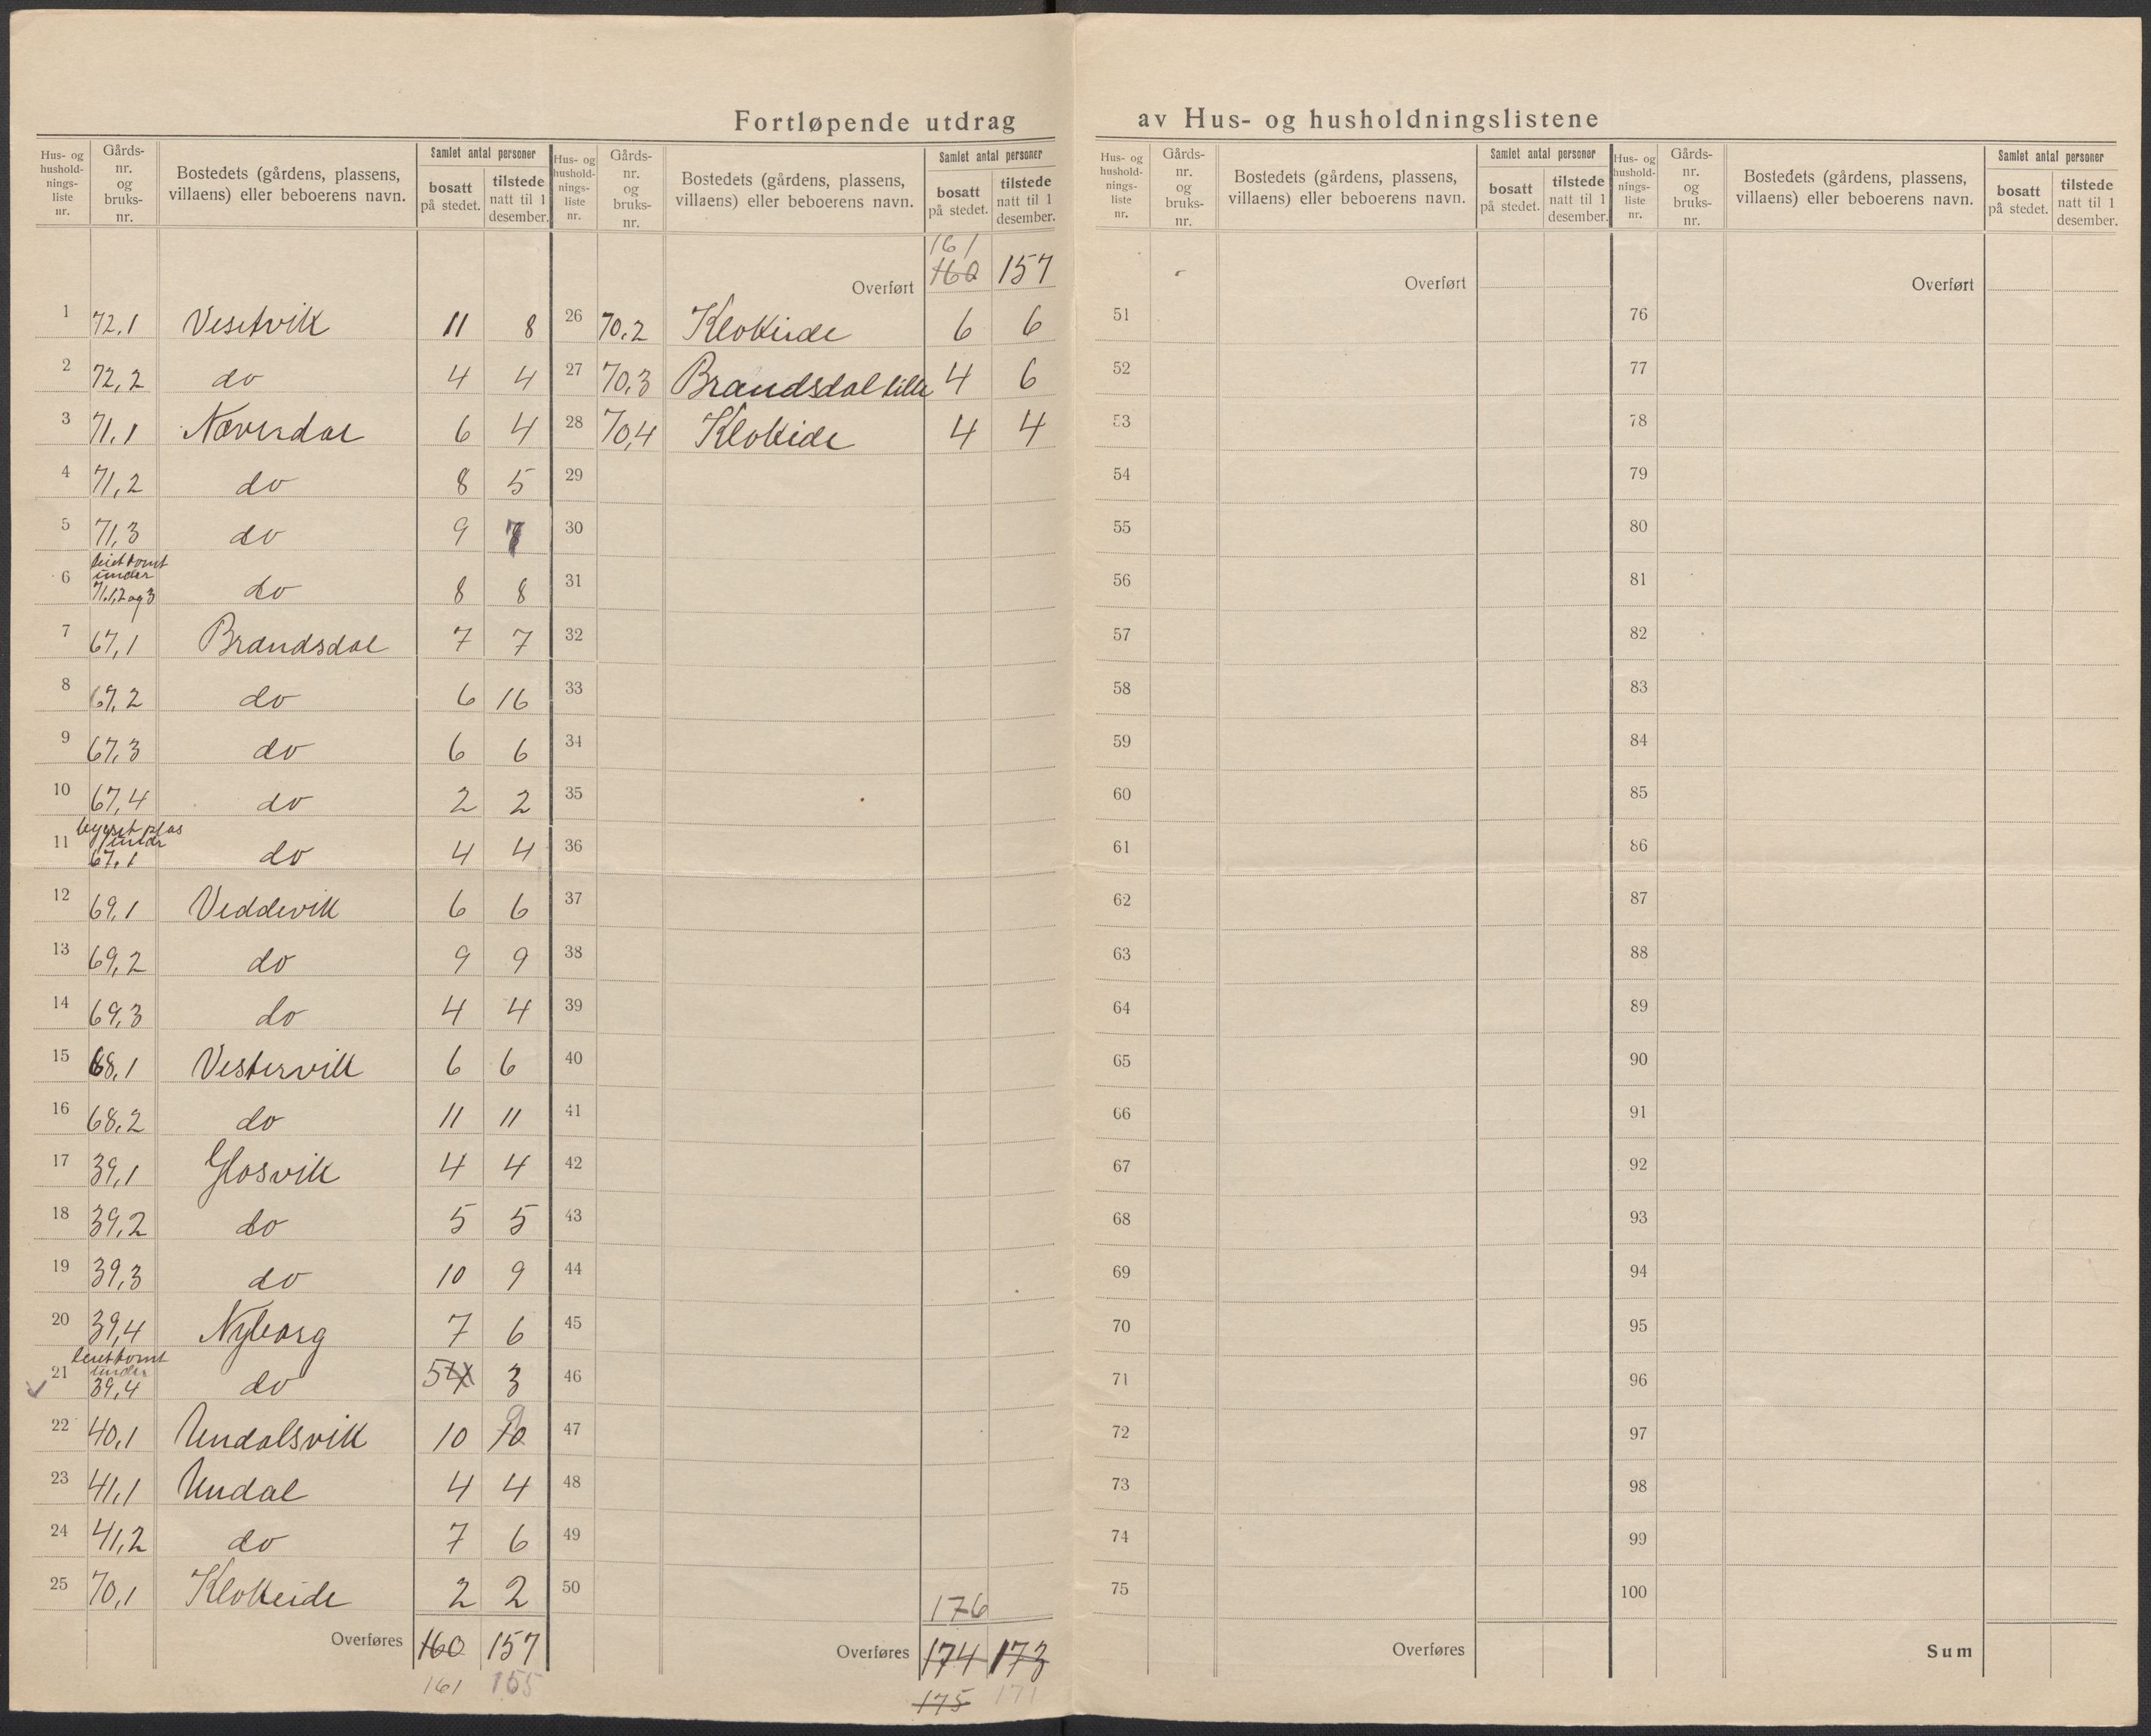 Fortløpende utdrag av Hus- og husholdningslistene
Hus- og hushold-nings-liste nr. | Gårds-nr. og bruks-nr. | Bostedets (gårdens, plassens, villaens) eller beboerens navn. | Samlet antal personer | bosatt på stedet. | tilstede natt til 1 desember.
1 72,1 Vesetvik 11 8
2 72,2 do 4 4
3 71,1 Nøverdal 6 4
4 71,2 do 8 5
5 71,3 do 9 7
6 leiet tomt under 71.1,2 og 3 do 8 8
7 67,1 Brandsdal 7 7
8 67,2 do 6 16
9 67,3 do 6 6
10 67,4 do 2 2
11 bygsel plas under 67,1 do 4 4
12 69,1 Veddevik 6 6
13 69,2 do 9 9
14 69,3 do 4 4
15 68,1 Vestervik 6 6
16 68,2 do 11 11
17 39,1 Glosvik 4 4
18 39,2 do 5 5
19 39,3 do 10 9
20 39,4 Nyborg 7 6
21 leiet tomt under 39,4 do 5 3
22 40,1 Undalsvik 10 10 9
23 41,1 Undal 4 4
24 41,2 do 7 6
25 70,1 Klokeide 2 2
Overføres 160 157
161 155
Hus- og hushold-nings-liste nr. | Gårds-nr. og bruks-nr. | Bostedets (gårdens, plassens, villaens) eller beboerens navn. | Samlet antal personer | bosatt på stedet. | tilstede natt til 1 desember.
161
Overført 160 157
26 70,2 Klokeide 6 6
27 70,3 Brandsdal lille 4 6
28 70,4 Klokeide 4 4
29
30
31
32
33
34
35
36
37
38
39
40
41
42
43
44
45
46
47
48
49
50
176
Overføres 174 173
175 171
Hus- og hushold-nings-liste nr. | Gårds-nr. og bruks-nr. | Bostedets (gårdens, plassens, villaens) eller beboerens navn. | Samlet antal personer | bosatt på stedet. | tilstede natt til 1 desember.
Overført
51
52
53
54
55
56
57
58
59
60
61
62
63
64
65
66
67
68
69
70
71
72
73
74
75
Overføres
Hus- og hushold-nings-liste nr. | Gårds-nr. og bruks-nr. | Bostedets (gårdens, plassens, villaens) eller beboerens navn. | Samlet antal personer | bosatt på stedet. | tilstede natt til 1 desember.
Overført
76
77
78
79
80
81
82
83
84
85
86
87
88
89
90
91
92
93
94
95
96
97
98
99
100
Sum